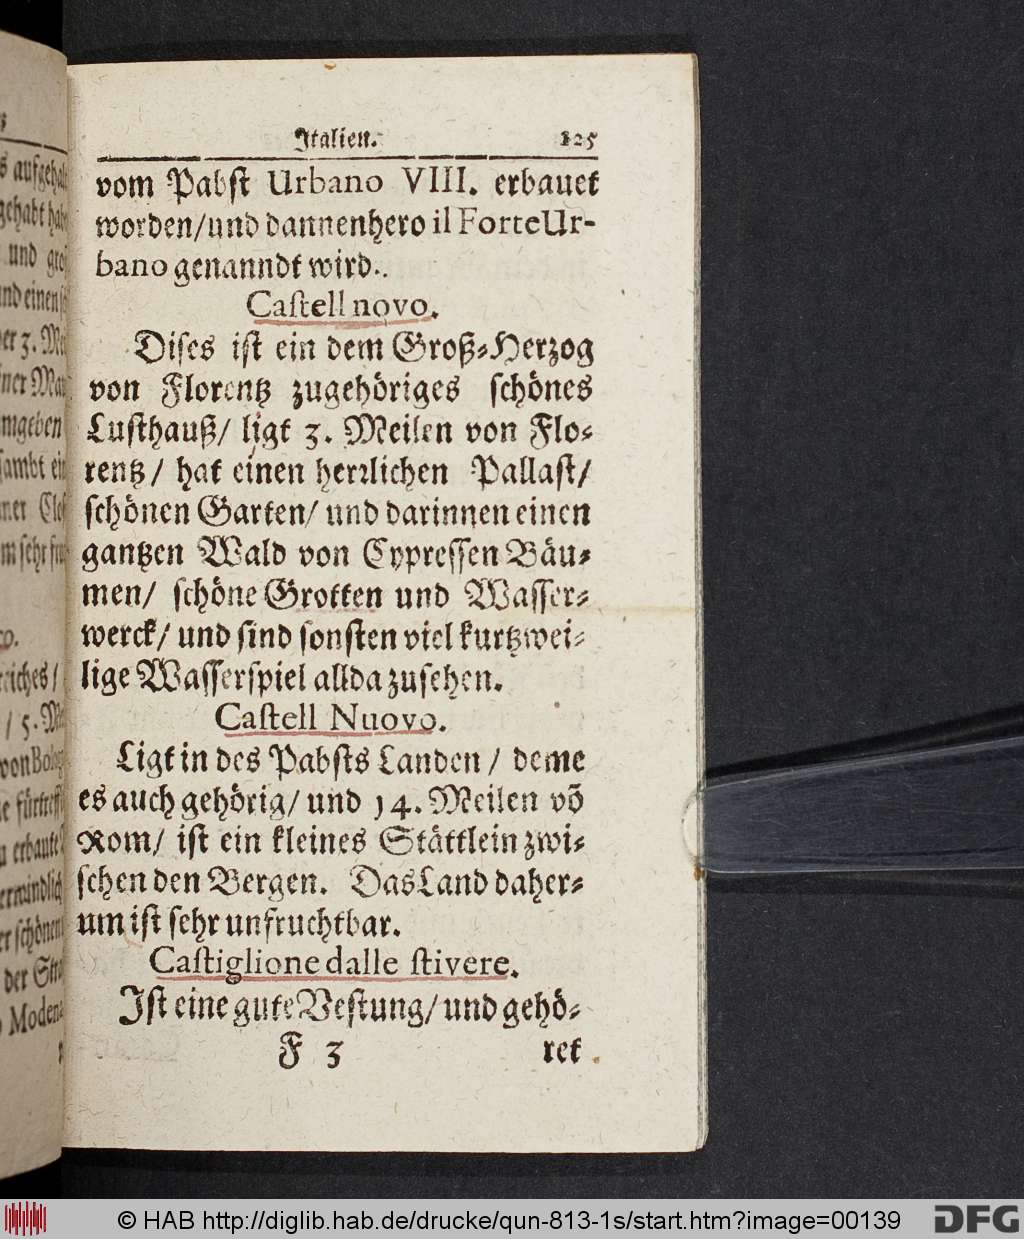 Italien. 125
vom Pabst Urbano VIII. erbauet
worden/und dannenhero il Forte Ur-
bano genanndt wird.
Castell novo.
Dises ist ein dem Groß-Herzog
von Florentz zugehöriges schönes
Lusthauß/ ligt 3. Meilen von Flo-
rentz/ hat einen herrlichen Pallast/
schönen Garten/ und darinnen einen
gantzen Wald von Cypressen Bäu-
men/ schöne Grotten und Wasser-
werck/ und sind sonsten viel kurtzwei-
lige Wasserspiel allda zusehen.
Castell Nuovo.
Ligt in des Pabsts Landen / deme
es auch gehörig/ und 14. Meilen võ
Rom/ ist ein kleines Stättlein zwi-
schen den Bergen. Das Land daher-
um ist sehr unfruchtbar.
Castiglione dalle stivere.
Ist eine gute Vestung/ und gehö-
F 3 ret
© HAB http://diglib.hab.de/drucke/qun-813-1s/start.htm?image=00139
DFG